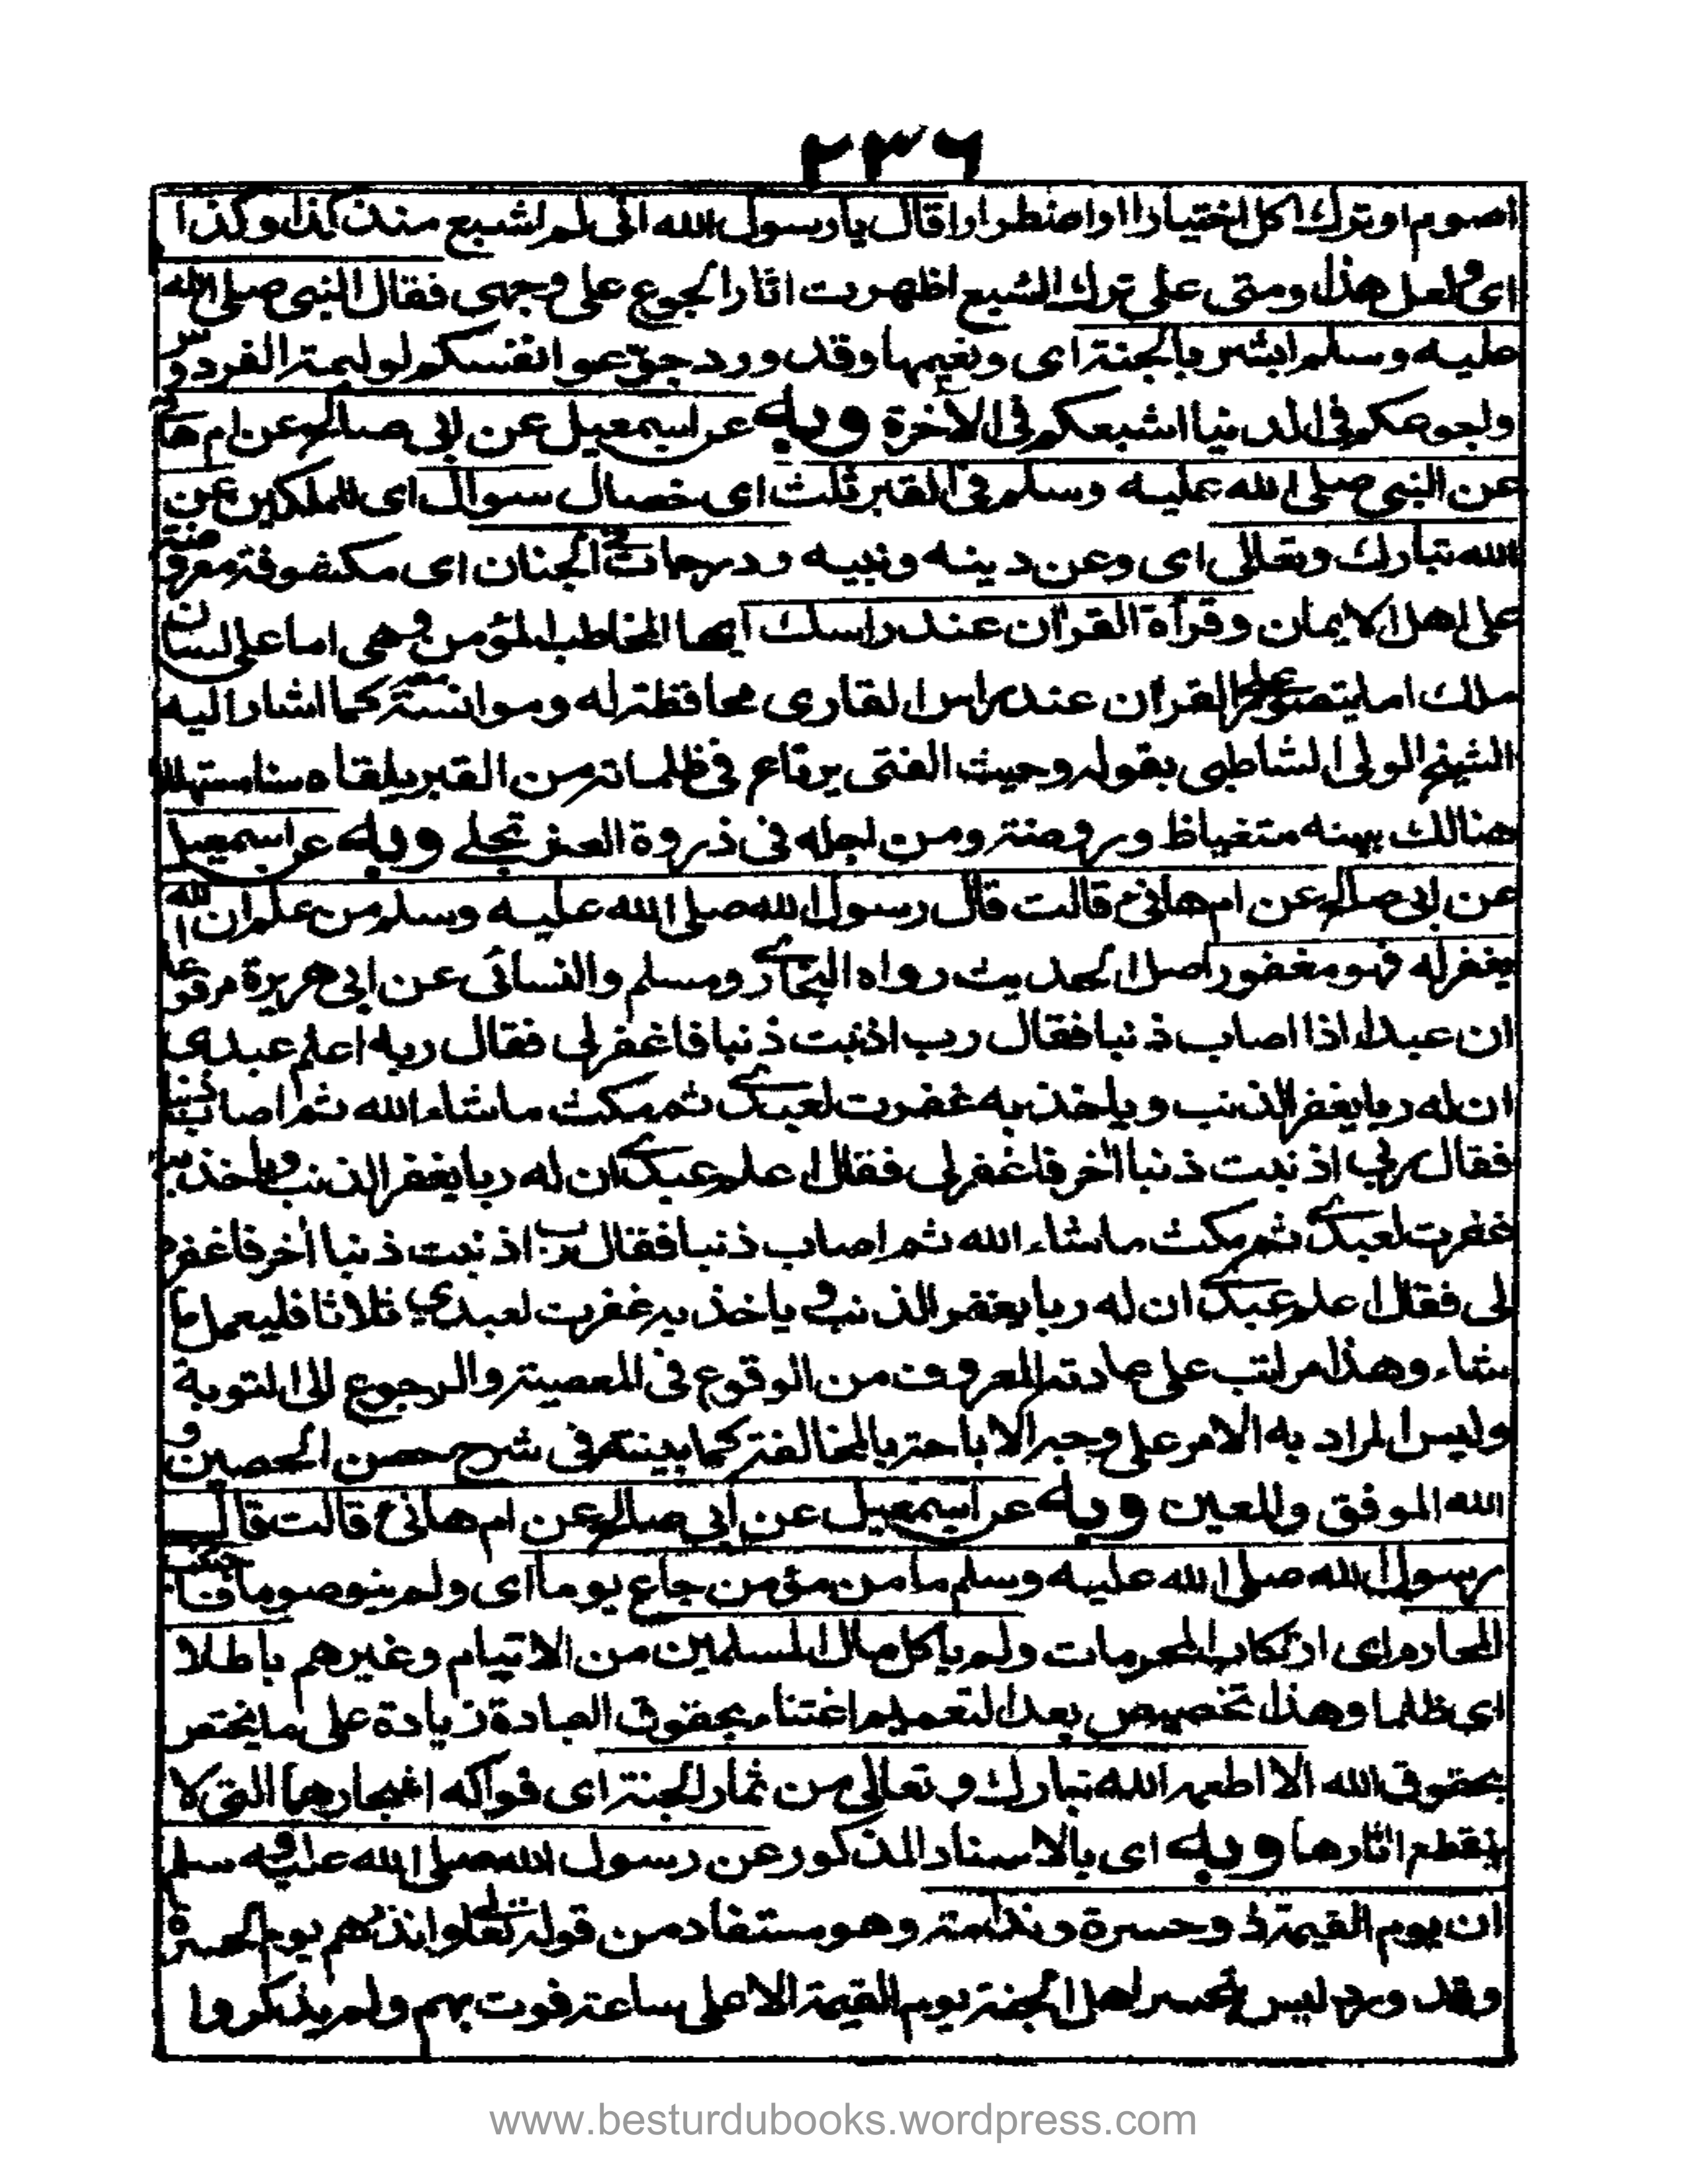 ٢٣٦
اصوم او ترك اكل اختيارا او اضطرارا قال يا رسول الله انى لم اشبع منذ كذا وكذا
اى ولعل هذا ومتى على ترك الشبع اظهرت اثار الجوع على وجهى فقال النبى صلى الله
عليه وسلم ابشر بالجنة اى ونعيمها وقد ورد جوّعوا انفسكم لوليمة الفردوس
ولجوعكم فى الدنيا اشبعكم فى الآخرة وبه عن اسمعيل عن ابى صالح عن ام هانئ
عن النبى صلى الله عليه وسلم فى القبر ثلث اى خصال سوال اى للملكين عن
الله تبارك وتعالى اى وعن دينه ونبيه ودرجات فى الجنان اى مكشوفة معروضة
على اهل الايمان وقرآة القرآن عند راسك ايها المخاطب المؤمن وهى اما على لسان
ملك اما يتصور القرآن عند راس القارى محافظة له وموانسة معه كما اشار اليه
الشيخ الولى الشاطبى بقوله وحيث الفتى يرتاع فى ظلماته من القبر يلقاه سنا متهللا
هنالك يهنه مقيلا وروضة ومن اجله فى ذروة العز تجلى وبه عن اسمعيل
عن ابى صالح عن ام هانئ قالت قال رسول الله صلى الله عليه وسلم من علم ان الله
يغفر له فهو مغفور اصل الحديث رواه البخارى ومسلم والنسائى عن ابى هريرة مرفوعا
ان عبدا اذا اصاب ذنبا فقال رب اذنبت ذنبا فاغفر لى فقال ربه اعلم عبدى
ان له ربا يغفر الذنب وياخذ به غفرت لعبدى ثم مكث ماشاء الله ثم اصاب ذنبا
فقال رب اذنبت ذنبا آخر فاغفر لى فقال اعلم عبدى ان له ربا يغفر الذنب وياخذ به
غفرت لعبدى ثم مكث ماشاء الله ثم اصاب ذنبا فقال رب اذنبت ذنبا آخر فاغفره
لى فقال اعلم عبدى ان له ربا يغفر الذنب وياخذ به غفرت لعبدى ثلاثا فليعمل ما
شاء وهذا مرتب على عادته المعروف من الوقوع فى المعصية والرجوع الى التوبة
وليس المراد به الامر على وجه الاباحة بالمخالفة كما بينته فى شرح حصن الحصين و
الله الموفق والمعين وبه عن اسمعيل عن ابى صالح عن ام هانئ قالت قال
رسول الله صلى الله عليه وسلم ما من مؤمن جاع يوما اى ولم ينو صوما فاجتنب
المحارم اى ارتكاب المحرمات ولم ياكل مال المسلمين من الايتام وغيرهم باطلا
اى ظلما وهذا تخصيص بعد التعميم اغتناء بحقوق العبادة زيادة على ما يختص
بحقوق الله الا اطعمه الله تبارك وتعالى من ثمار الجنة اى فواكه اشجارها التى لا
ينقطع اثارها وبه اى بالاسناد المذكور عن رسول الله صلى الله عليه وسلم
ان يوم القيمة ذو حسرة وندامة وهو مستفاد من قوله تعالى وانذرهم يوم الحسرة
وقد ورد ليس تحسر اهل الجنة يوم القيمة الا على ساعة فوت بهم ولم يذكروا
www.besturdubooks.wordpress.com